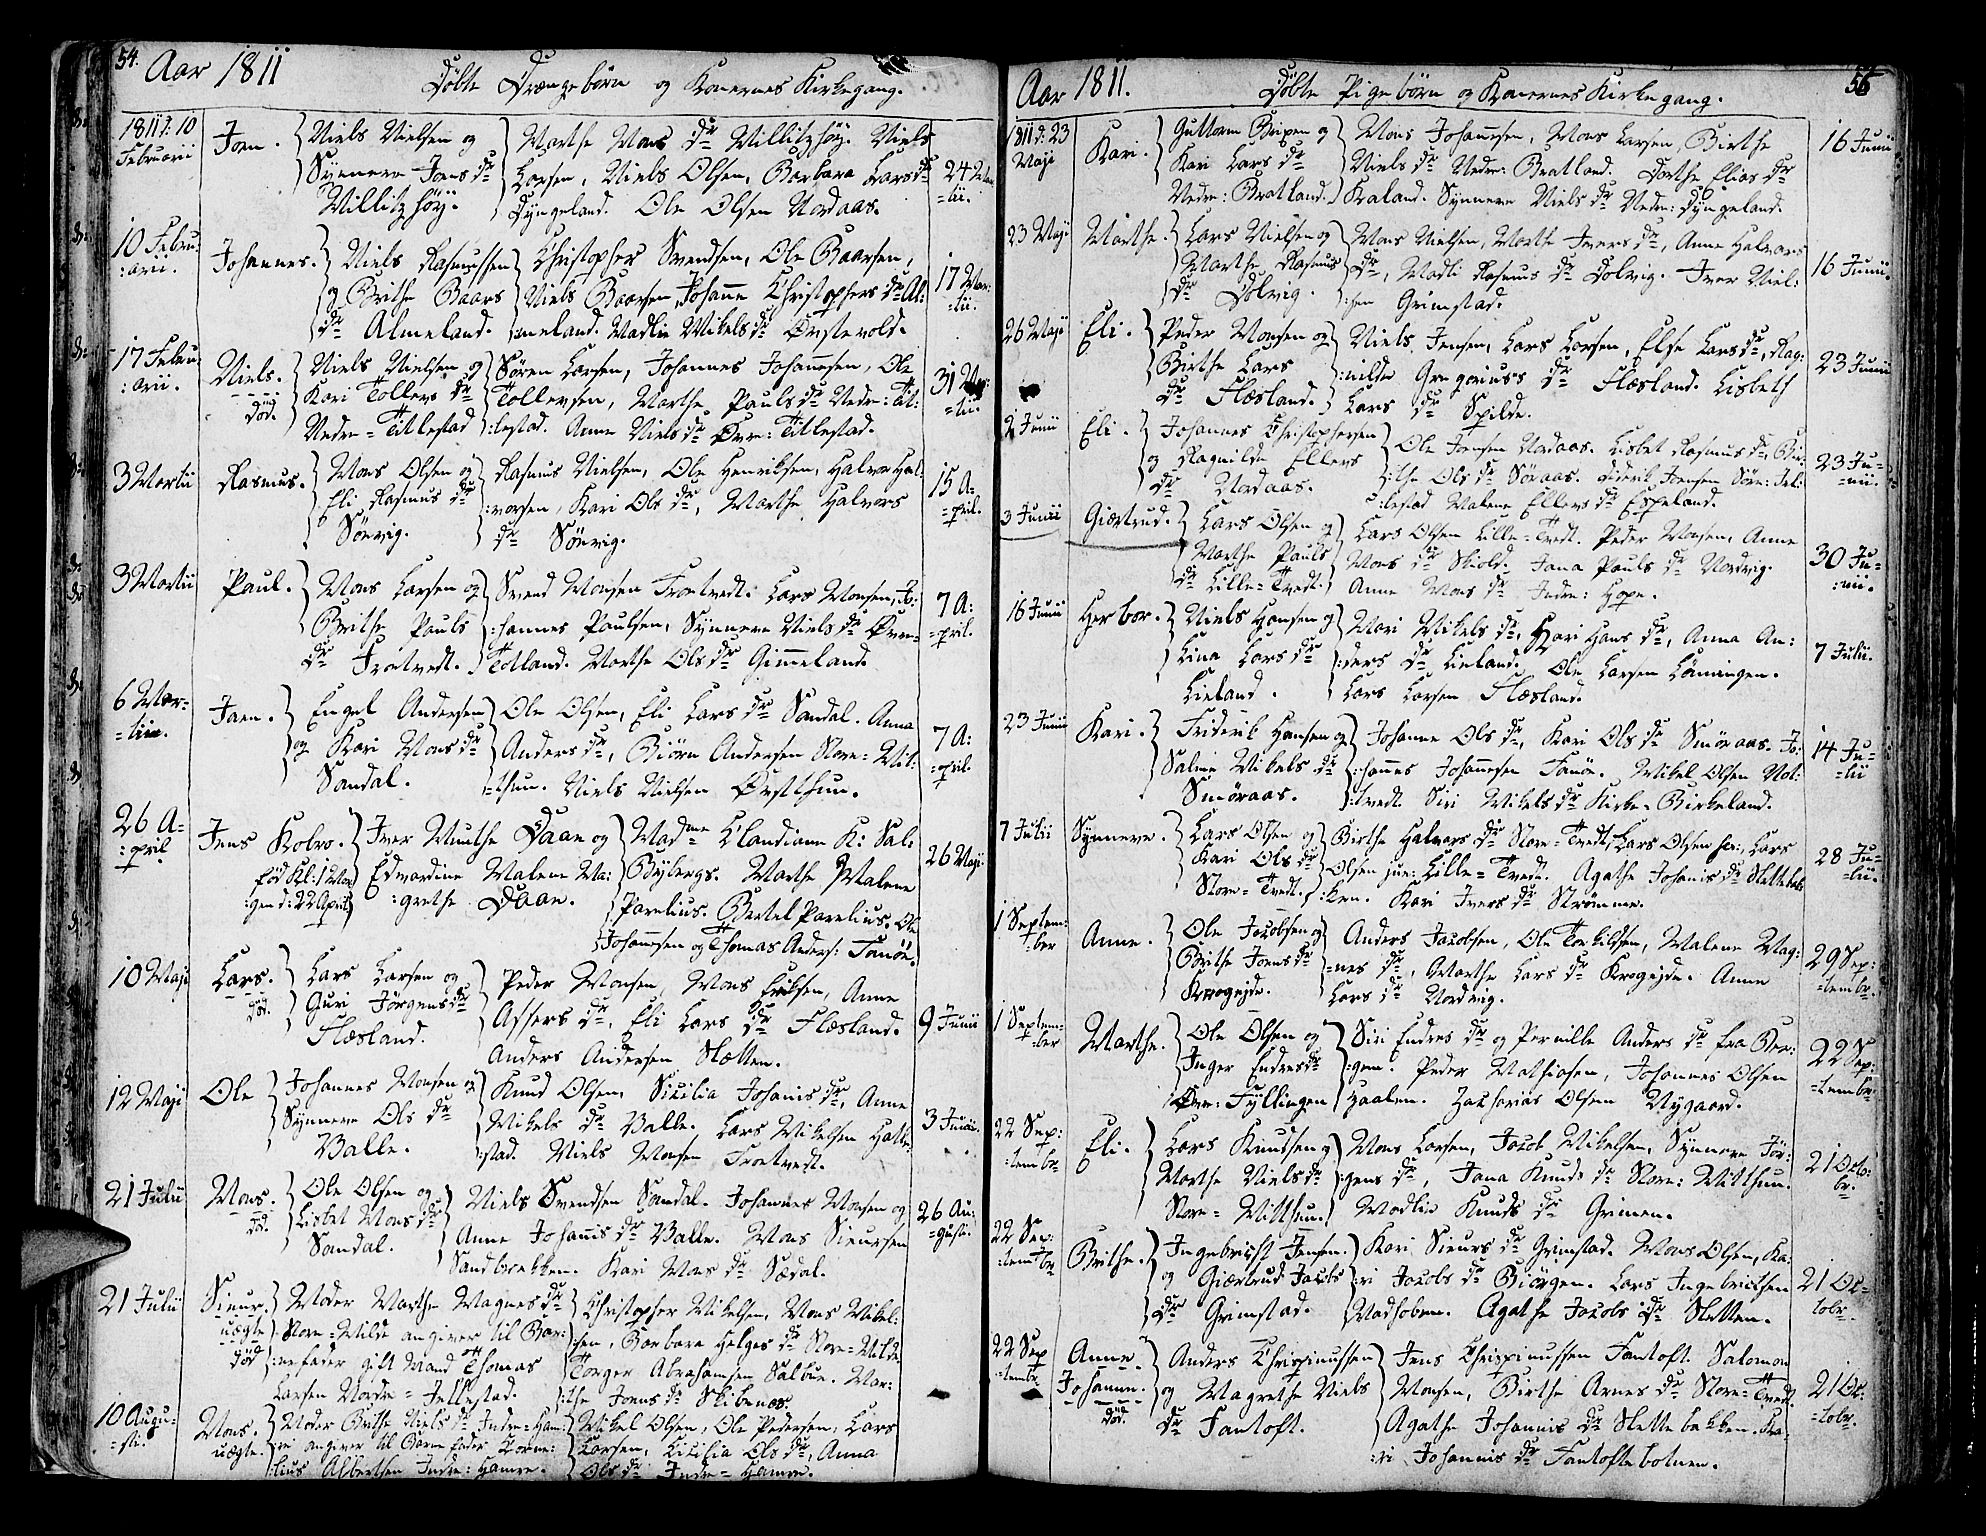 54.
Aar 1811
Døbte Drængebörn og Konernes Kirkegang.
1811 d: 10
Februarii
Joen.
Niels Nielsen og
Synneve Joens dr
Millitzhöy.
Marthe Mons dr Millitzhöy. Niels
Larsen, Niels Olsen, Barbara Lars dr
Dyngeland. Ole Olsen Nordaas.
24 Mar
=tii.
10 Febru:
:arii.
Johannes.
Niels Rasmussen
og Brithe Baars
dr Almeland.
Christopher Svendsen, Ole Baarsen,
Niels Baarsen, Johanne Christophers dr Al:
:meland. Madlie Mikels dr Øvstevold.
17 Mar:
:tii.
17 Febru:
:arii.
Niels.
død.
Niels Nielsen og
Kari Tollevs dr
Nedre=Titlestad
Søren Larsen, Johannes Johannesen, Ole
Tollevsen, Marthe Pauls dr Nedre: Tit:
:lestad. Anne Niels dr Øvre: Titlestad.
31 Mar:
=tii.
3 Martii
Rasmus.
Mons Olsen og
Eli Rasmus dr
Sörvig.
Rasmus Nielsen, Ole Henriksen, Halvor Hal:
:vorsen, Kari Ols dr, Marthe Halvors
dr Sörvig.
15 A=
=pril.
3 Martii
Paul.
Mons Larsen og
Brithe Pauls
dr Troetvedt.
Svend Monsen Troetvedt. Lars Monsen, Jo:
:hannes Paulsen, Synneve Niels dr Øvre=
Totland. Marthe Ols dr Gimmeland
7 A:
=pril.
6 Mar=
=tii.
Joen.
Engel Andersen
og Kari Mons dr
Sandal.
Ole Olsen, Eli Lars dr Sandal. Anna
Anders dr, Biörn Andersen Store=Mil:
=thun. Niels Nielsen Øvstthun.
7 A:
=pril.
26 A=
:pril
Jens Kobro.
fød Kl: 1 Mor
:gen d: 22 April
Iver Munthe Daae og
Edvardine Malene Ma:
:grethe Daae.
Madme Claudiane K: Sal:
Bÿbergs. Marthe Malene
Parelius. Bertel Parelius. Ole
Johannesen og Thomas Anders: Tanöe.
26 Maji
10 Maji
Lars.
død.
Lars Larsen og
Guri Jörgens dr
Flæsland.
Peder Monsen, Mons Eriksen, Anne
Assers dr, Eli Lars dr Flæsland.
Anders Andersen Slætten.
9 Junii
12 Maji
Ole
Johannes Monsen og
Synneve Ols dr
Balle.
Knud Olsen, Sicilia Johanis dr, Anne
Mikels dr Balle. Lars Mikelsen Hatle
:stad. Niels Monsen Troetvedt.
3 Junii.
21 Julii
Mons.
død.
Ole Olsen og
Lisbet Mons dr
Sandal.
Niels Svendsen Sandal. Johannes Monsen og
Anne Johanis dr Balle. Mons Sieursen
Sandbrekken. Kari Mons dr Sædal.
26 Au:
=gusti.
21 Julii
Sieur.
uægte
død
Moder Marthe Magnes dr
Store=Milde angiver til Bar:
:nefader gift Mand Thomas
Larsen Nordre=Fellestad.
Christopher Mikelsen, Mons Mikel:
:sen, Barbara Helges dr Store=Milde
Torger Abrahamsen Salbue. Mar:
:the Joens dr Skibenæs.
10 Augu=
=sti.
Mons.
uægte.
Moder Brithe Niels dr Indre=Ham:
:re angiver til Barne fader Corne:
:lius Albertsen Indre: Hamre.
Mikel Olsen, Ole Pedersen, Lars
Larsen, Cicilia Ols dr, Anna
Ols dr Indre=Hamre.
Aar 1811.
Døbte Pigebörn og Konernes Kirkegang.
56
1811 d: 23
Maji
Kari.
Guttorm Bripen og
Kari Lars dr
Nedre: Bratland.
Mons Johannesen, Mons Larsen, Birthe
Niels dr Nedre: Bratland. Dorthe Elias dr
Kaland. Synneve Niels dr Nedre: Dyngeland.
16 Junii
23 Maji
Marthe.
Lars Nielsen og
Marthe Rasmus
dr Dolvig.
Mons Nielsen, Marthe Ivers dr, Anne Halvors
dr, Madli Rasmus dr Dolvig. Iver Niel:
:sen Grimstad.
16 Junii.
26 Maji
Eli.
Peder Monsen og
Birthe Lars
dr Flæsland.
Niels Jensen, Lars Larsen, Else Lars dr, Rag:
:nilde Gregorius dr Flæsland. Lisbeth
Lars dr Spilde.
23 Junii
2 Junii
Eli.
Johannes Christophersen
og Ragnilde Ellevs
dr Nordaas.
Ole Jensen Nordaas. Lisbet Rasmus dr, Bir:
:the Ols dr Söraas. Diderik Jensen Söre: Fel:
:lestad Malene Ellevs dr Espeland.
23 Ju=
=nii.
3 Junii
Giærtrud.
Lars Olsen og
Marthe Pauls
dr Lille=Tvedt.
Lars Olsen Lille=Tvedt. Peder Monsen, Anne
Mons dr Skiold. Jana Pauls dr Nordvig.
Anne Mons dr Indre: Hope.
30 Ju=
:nii.
16 Junii
Herbor.
Niels Hansen og
Lina Lars dr
Lieland.
Mari Mikels dr, Kari Hans dr, Anna An:
:ders dr Lieland. Ole Larsen Lönningen.
Lars Larsen Flæsland.
7 Julii.
23 Junii
Kari.
Friderik Hansen og
Salme Mikels dr
Smöraas.
Johanne Ols dr, Kari Ols dr Smöraas. Jo:
:hannes Johannesen Tanöe. Mikel Olsen Nat:
:tvedt Siri Mikels dr Kirke=Birkeland.
14 Ju=
=lii
7 Julii
Synneve.
Lars Olsen og
Kari Ols dr
Store=Tvedt.
Birthe Halvors dr Store=Tvedt, Lars Olsen sen:, Lars
Olsen jun: Lille=Tvedt. Agathe Johanis dr Slettebak
:ken. Kari Ivers dr Strömme.
28 Ju=
=lii.
1 Septem:
ber
Anne.
Ole Jacobsen og
Brithe Joens dr
Krogejde.
Anders Jacobsen, Ole Torkildsen, Malene Mag:
=nes dr, Marthe Lars dr Krogejde. Anne
Lars dr Nordvig.
29 Sep:
=tembr.
1 Septem=
=ber
Marthe.
Ole Olsen og
Inger Endres dr
Øvr: Fyllingen
Siri Endres dr og Pernille Anders dr fra Ber:
:gen. Peder Mathiasen, Johannes Olsen
Haalen. Zakharias Olsen Nygaard.
22 Sep:
=tembr
22 Sep:
:tembr
Eli.
Lars Knudsen og
Marthe Niels dr
Store=Milthun.
Mons Larsen, Jacob Mikelsen, Synneve Jör:
:gens dr, Jana Knuds dr Store: Milthun.
Madlie Knuds dr Grimen.
21 Octo:
br.
22 Sep:
:tembr
Brithe.
Ingebricht Jensen
og Giærtrud Jacobs
dr Grimstad.
Kari Sieurs dr Grimstad. Mons Olsen, Ka:
:ri Jacobs dr Biörgen. Lars Ingebrictsen
Vadsöben. Agathe Jacobs dr Sletten.
21 Oc=
tobr.
22 Sep
:tembr
Anne
Johanne.
død.
Anders Chrispinussen
og Magrethe Niels
dr Fantoft.
Jens Chrispinussen Fantoft. Salomon
Monsen, Birthe Arnes dr Store=Tvedt.
Agathe Johannis dr Slettebakken. Ka=
:ri Johannis dr Fantoftebotnen.
21 Oc=
=tobr.